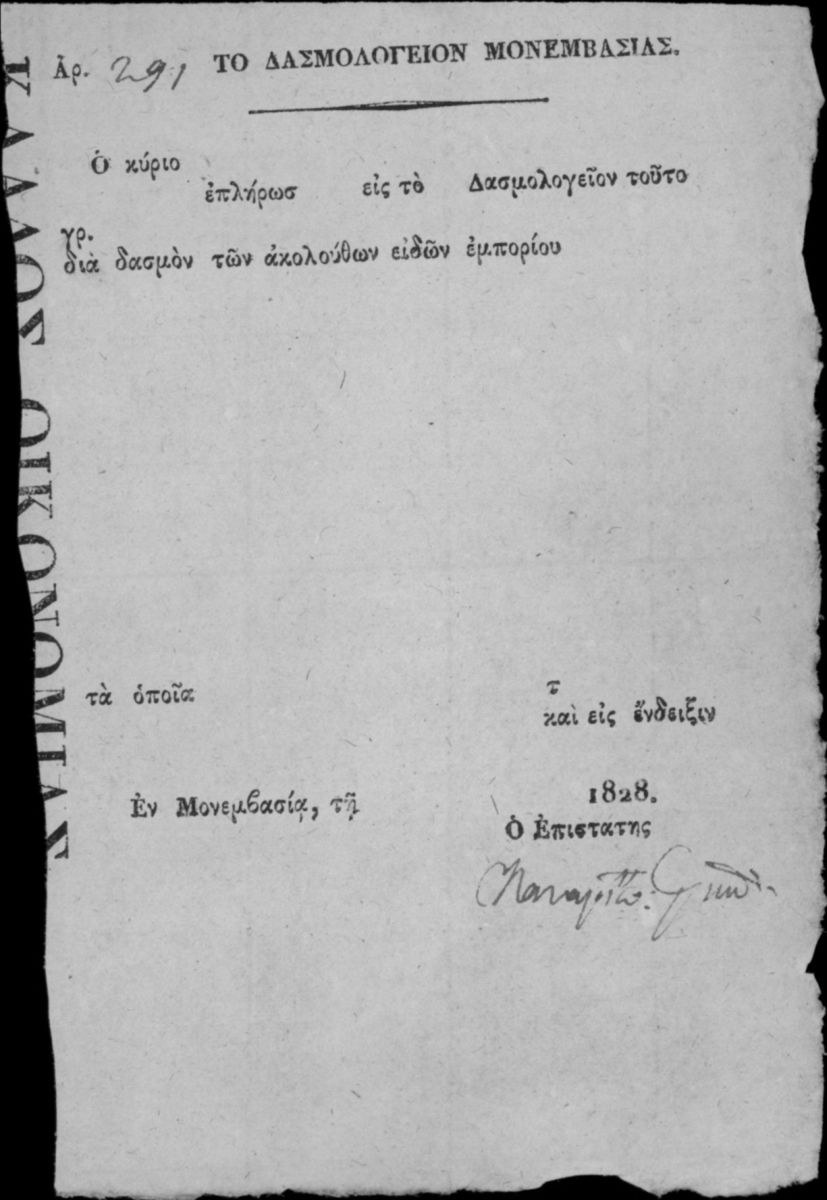 Ἀρ. 291 ΤΟ ΔΑΣΜΟΛΟΓΕΙΟΝ ΜΟΝΕΜΒΑΣΙΑΣ.
Ὁ κύριο
ἐπλήρωσ εἰς τὸ Δασμολογεῖον τοῦτο
γρ.
διὰ δασμὸν τῶν ἀκολούθων εἰδῶν ἐμπορίου
τὰ ὁποῖα τ
καὶ εἰς ἔνδειξιν
Ἐν Μονεμβασίᾳ, τῇ 1828.
Ὁ Ἐπιστατης
ΚΛΑΔΟΣ ΟΙΚΟΝΟΜΙΑΣ